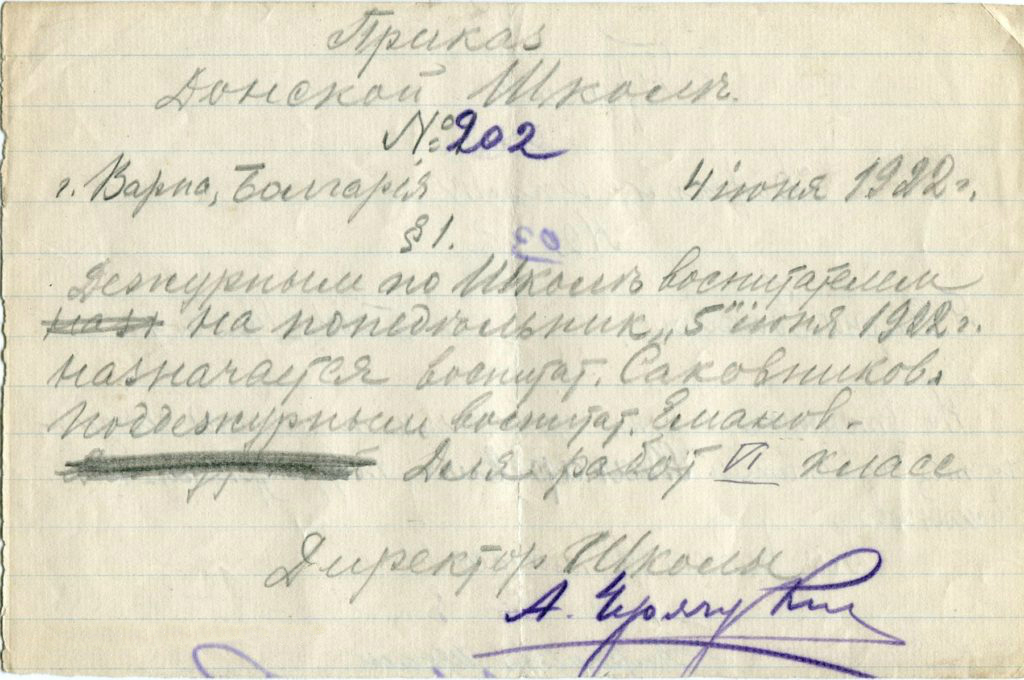 Приказ
Донской Школѣ.
№ 202
г. Варна, Болгарія 4 іюня 1922 г.
§ 1.
Дежурным по Школѣ воспитателем
наз на понедѣльник „5" іюня 1922 г.
назначается воспитат. Саковников.
Поддежурным воспитат. Еманов.
Для работ VI класс
Директор Школы
А.